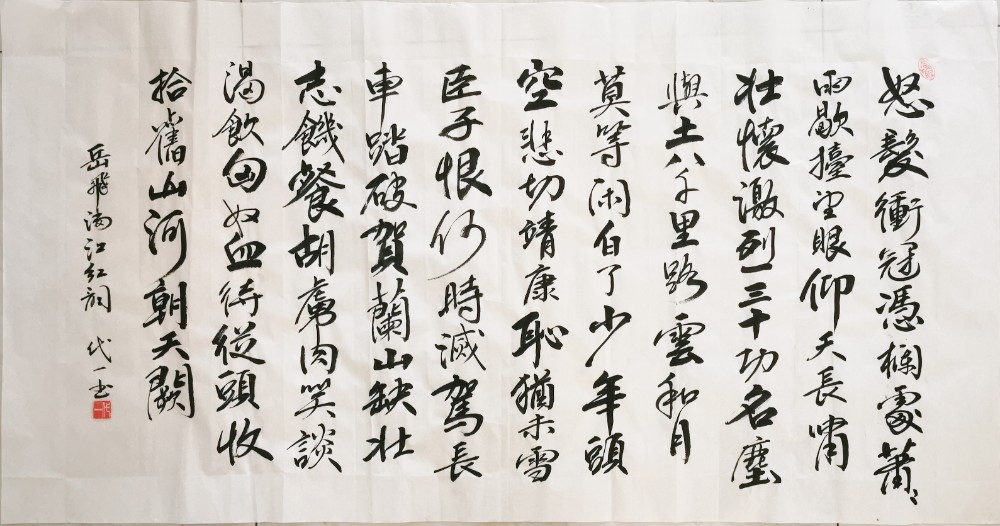 怒髮衝冠憑欄處蕭〻
雨歇擡望眼仰天長嘯
壯懷激列三十功名塵
與土八千里路雲和月
莫等闲白了少年頭
空悲切靖康恥猶未雪
臣子恨何時滅駕長
車踏破賀蘭山缺壯
志饑餐胡虜肉笑談
渴飲匈奴血待從頭收
拾舊山河朝天闕
岳飛滿江紅詞 代一书